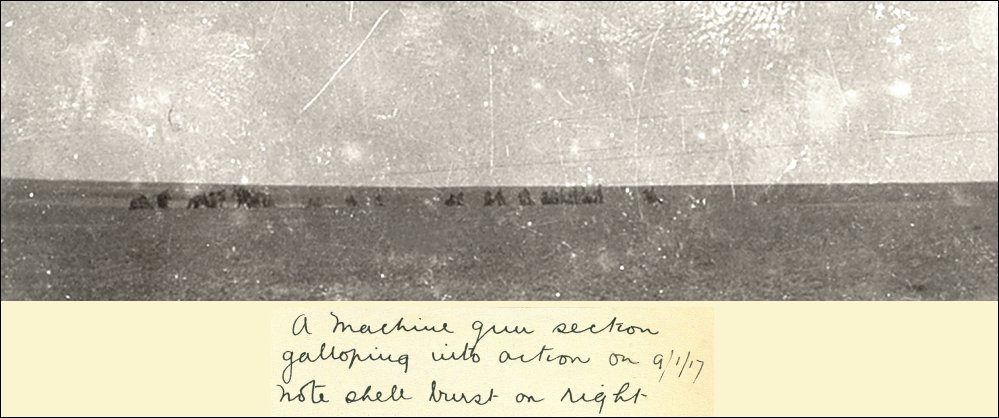 A Machine gun section
galloping into action on 9/1/17
Note shell burst on right